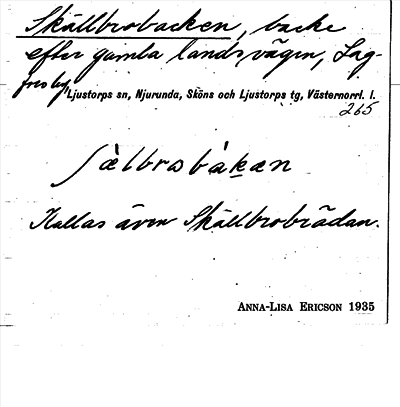 Skällbrobacken, backe
efter gamla landsvägen, Lag-
fors by,
Ljustorps sn, Njurunda, Sköns och Ljustorps tg, Västernorrl. l.
265
ʃälbrobàkæn
Kallas även Skällbrobrädan.
ANNA-LISA ERICSON 1935